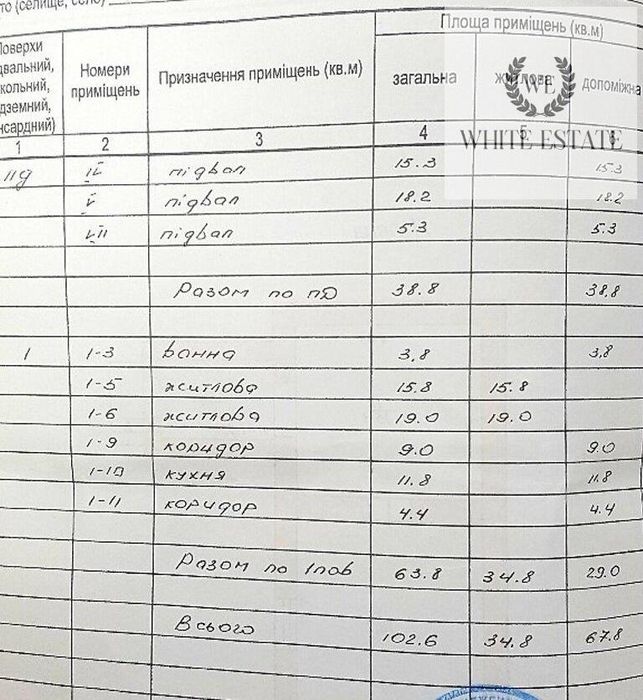 то (селище, село)
Площа приміщень (кв.м)
Поверхи
Номери приміщень
Призначення приміщень (кв.м)
загальна
житлова
допоміжна
1 2 3 4 5 6
WE
WHITE ESTATE
пд IV підвал 15.3 15.3
V підвал 18.2 18.2
VII підвал 5.3 5.3
Разом по пд 38.8 38.8
1 1-3 ванна 3.8 3.8
1-5 житлова 15.8 15.8
1-6 житлова 19.0 19.0
1-9 коридор 9.0 9.0
1-10 кухня 11.8 11.8
1-11 коридор 4.4 4.4
Разом по 1пов 63.8 34.8 29.0
Всього 102.6 34.8 67.8